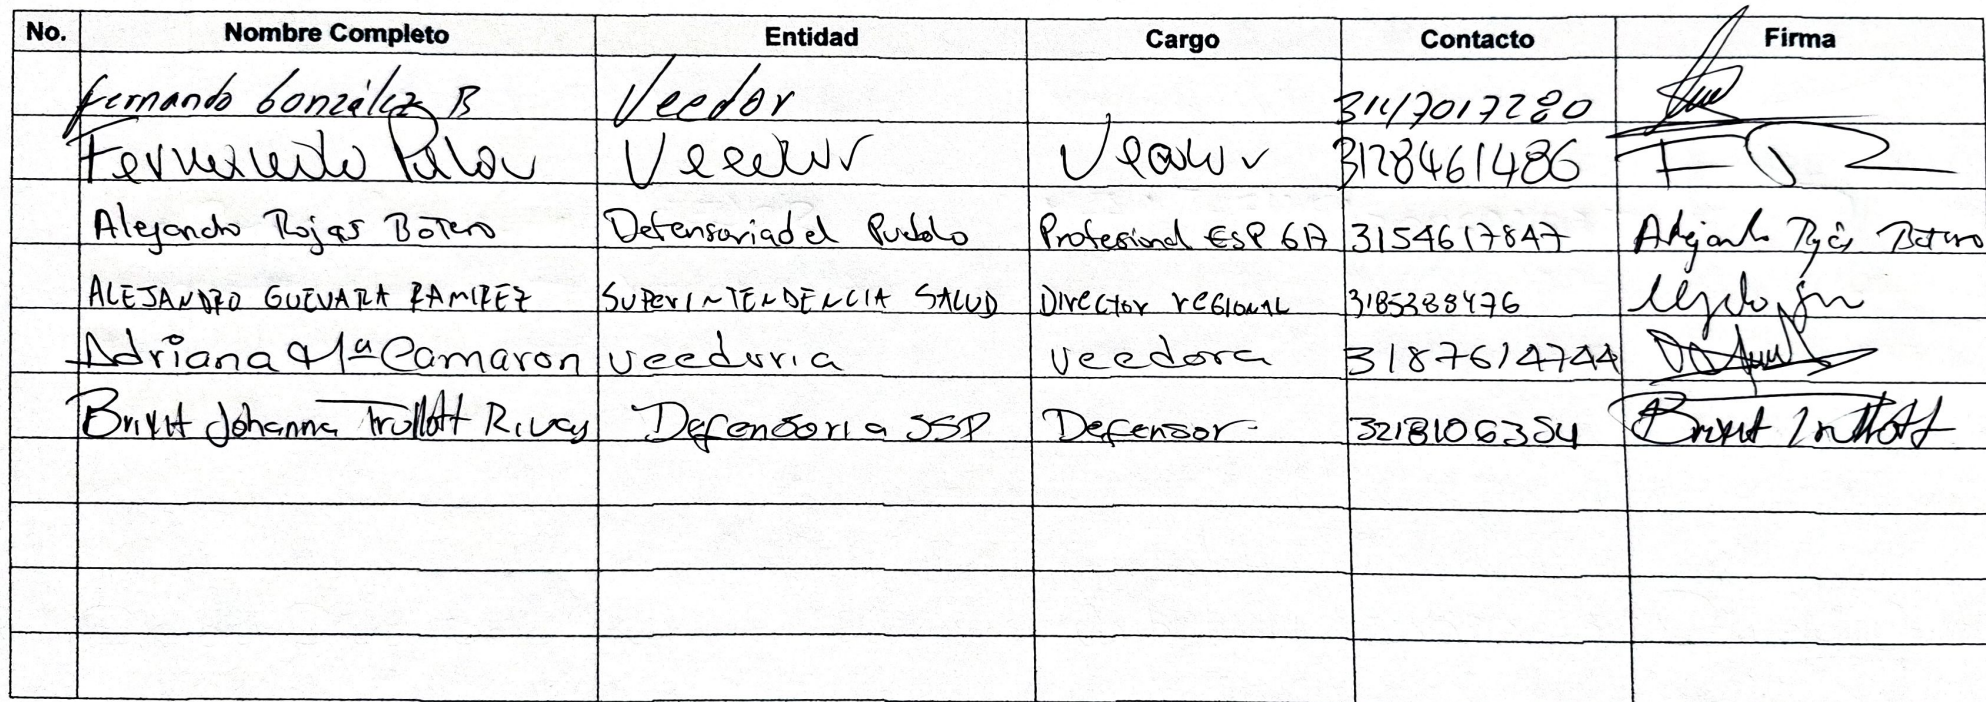 No. Nombre Completo Entidad Cargo Contacto Firma
Fernando González B Veedor 3147017280
Fernando Veedor Veedor 3128461486
Alejandro Rojas Botero Defensoria del Pueblo Profesional ESP GA 3154617847 Alejandro Rojas Botero
ALEJANDRO GUEVARA RAMIREZ SUPERINTENDENCIA SALUD Director regional 3185388476
Adriana Mª Camaron veeduria veedora 3187614744
Johanna Trullott Rivas Defensoria SSP Defensor 3218106354 Trullott